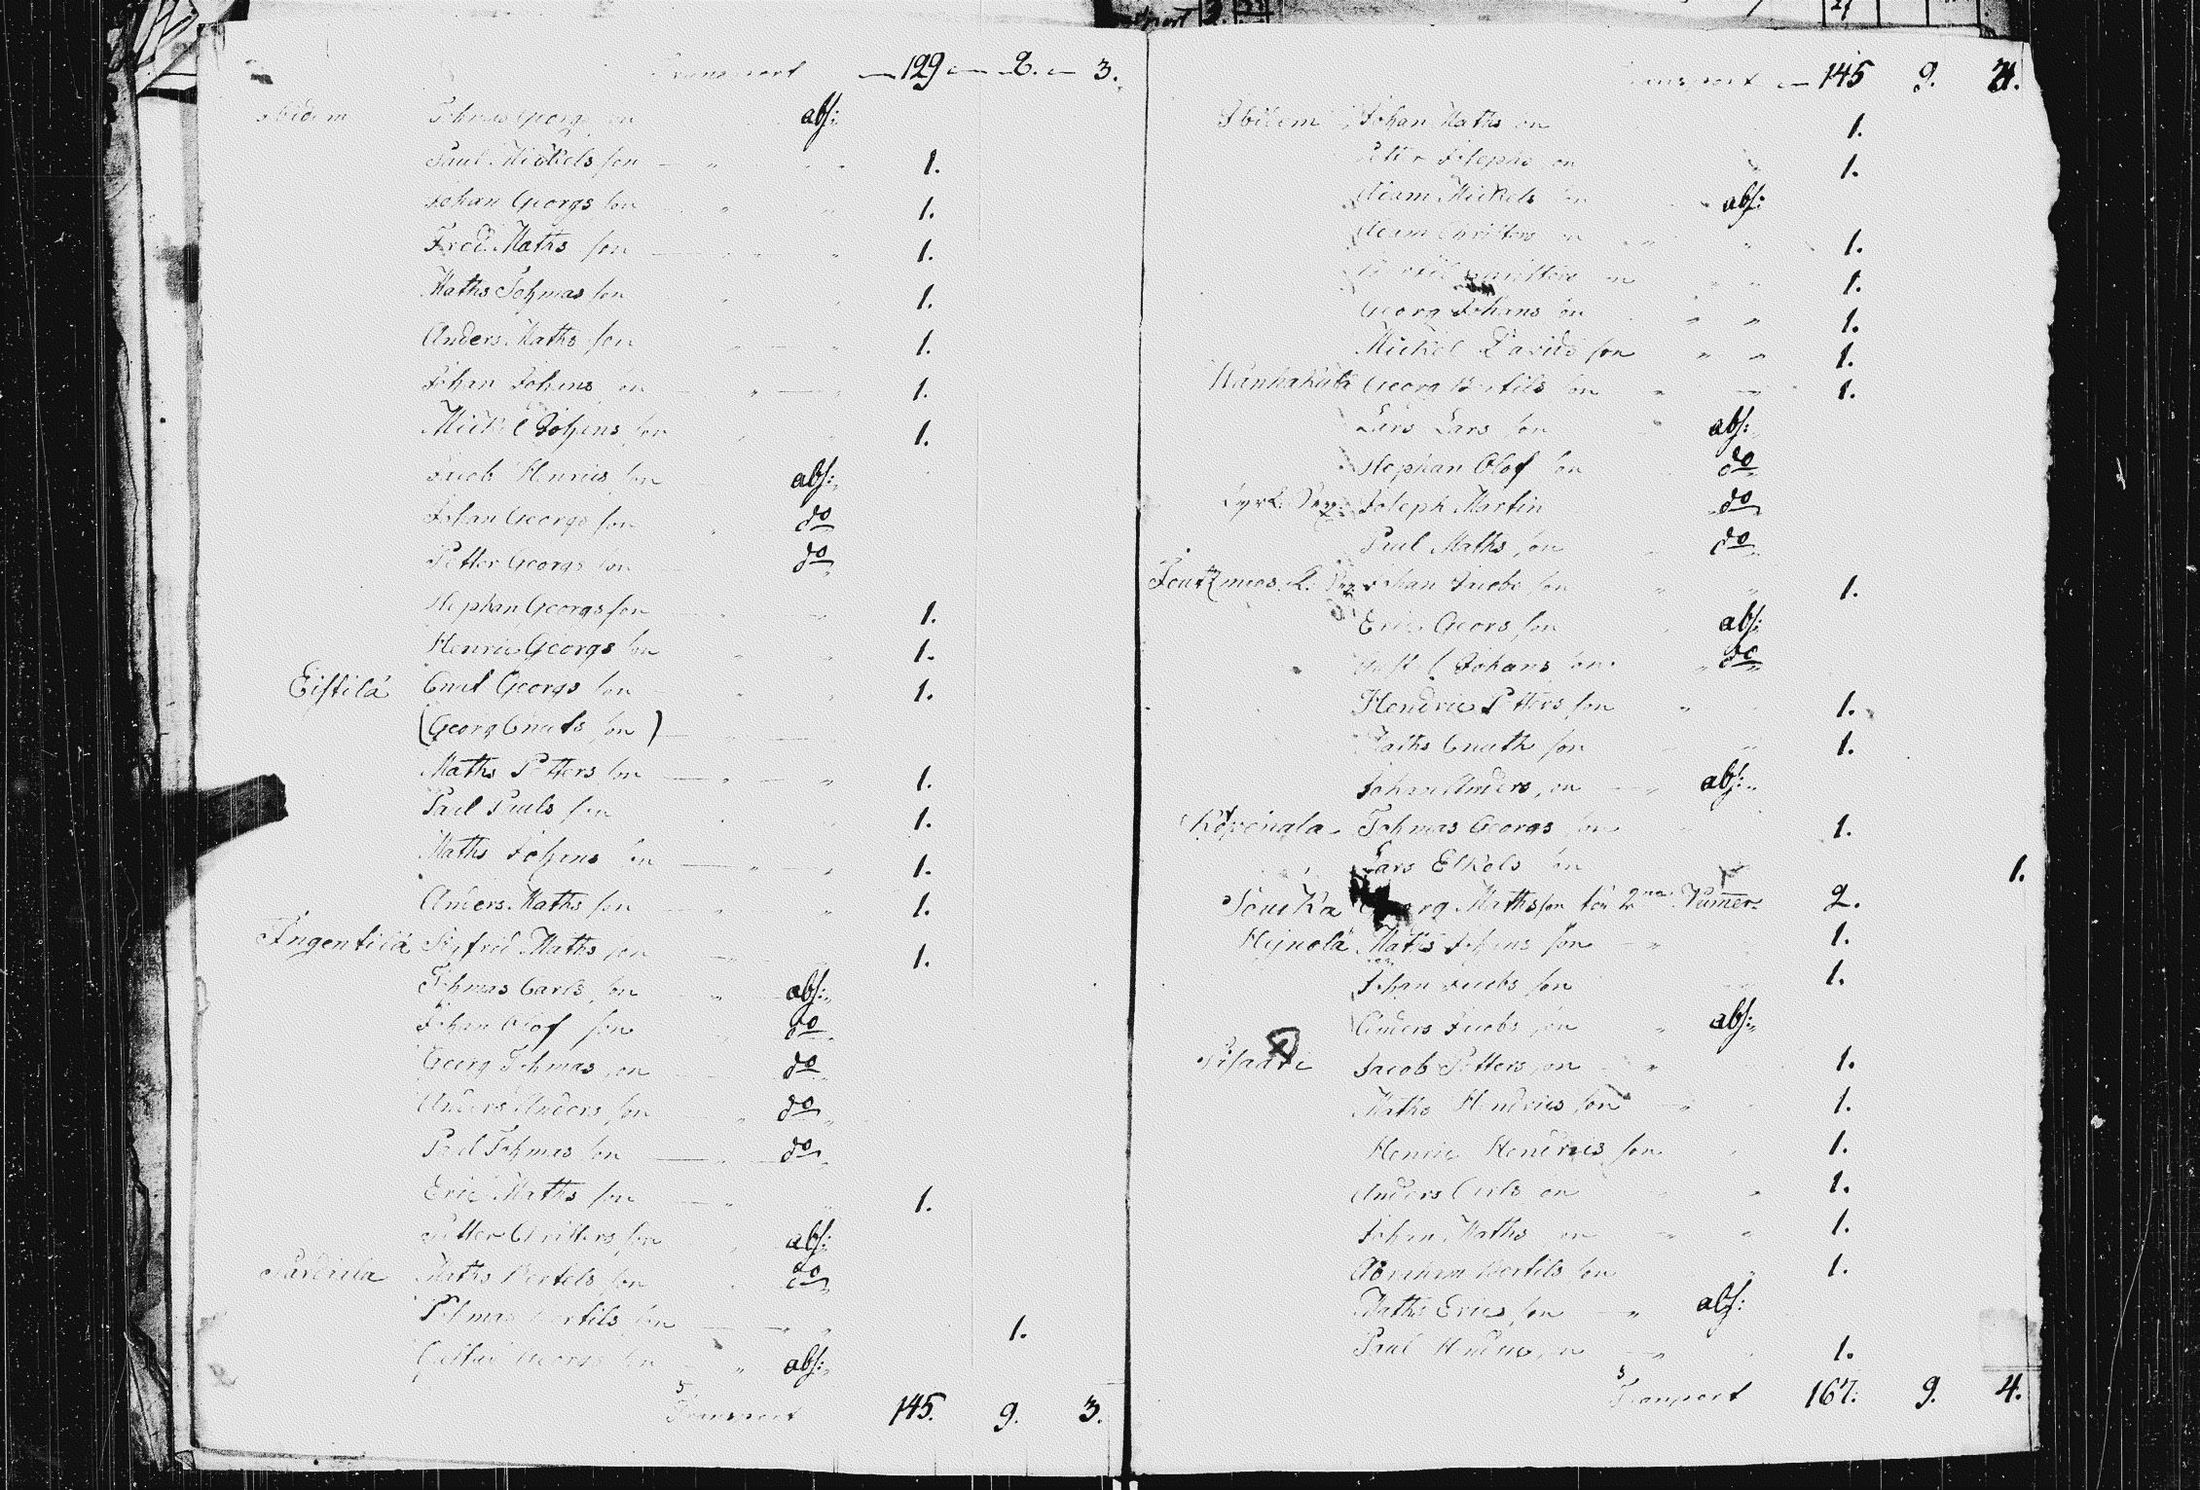 Transport — 129 — 8. — 3.
Ibidem Tohmas Georgs son abs:
Paul Mickels son 1.
Johan Georgs son 1.
Fred. Maths son 1.
Maths Tohmas son 1.
Anders Maths son 1.
Johan Johans son 1.
Mickel Johans son 1.
Jacob Henrics son abs:
Johan Georgs son do
Petter Georgs son do
Stephan Georgs son 1.
Henric Georgs son 1.
Eistilä Cnut Georgs son 1.
(Georg Cnuts son)
Maths Petters son 1.
Paul Pauls son 1.
Maths Johans son 1.
Anders Maths son 1.
Ingentilä Sigfrid Maths son 1.
Tohmas Carls son abs:
Johan Olof son do
Georg Tohmas son do
Anders Anders son do
Paul Tohmas son do
Eric Maths son 1.
Petter Christers son abs:
Maths Bertels son do
Tohmas Bertils son 1.
Gustav Georgs son abs:
Transport 145. 9. 3.
Transport — 145 9. 3.
Ibidem Johan Maths son 1.
Petter Josephs son 1.
Adam Mickels son abs:
Adam Christers son 1.
Bertil Christers son 1.
Georg Johans son 1.
Mickel Davids son 1.
Wanhakylä Georg Bertils son 1.
Lars Lars son abs:
Stephan Olof son do
Joseph Martin do
Paul Maths son do
Johan Jacobs son 1.
Eric Geors son abs:
Johans son do
Hendric Petters son 1.
Maths Cnuth son 1.
Johan Anders son abs:
Tohmas Georgs son 1.
Lars Eskels son 1.
Georg Mathsson för 2ne Numer 2.
Hejnolä Maths Johans son 1.
Johan Jacobs son 1.
Anders Jacobs son abs:
Jacob Petters son 1.
Maths Hendrics son 1.
Henric Hendrics son 1.
Anders Carls son 1.
Johan Maths son 1.
Abraham Bertils son 1.
Maths Erics son abs:
Paul Hendrics son 1.
Transport 167. 9. 4.